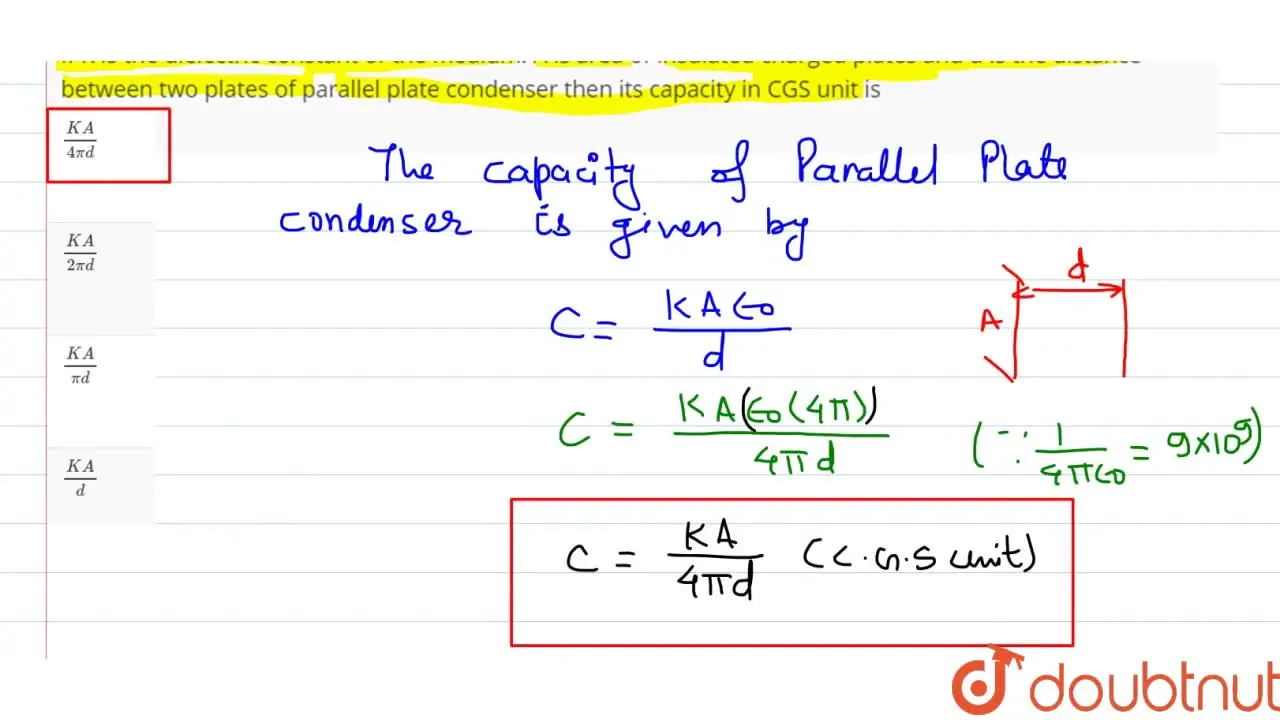 between two plates of parallel plate condenser then its capacity in CGS unit is
KA/4πd
The capacity of Parallel Plate
condenser is given by
KA/2πd
d
A
C = KA∈0/d
KA/πd
C = KA(∈0(4π))/4πd (∵ 1/4π∈0 = 9×10⁹)
KA/d
C = KA/4πd (C.G.S unit)
doubtnut